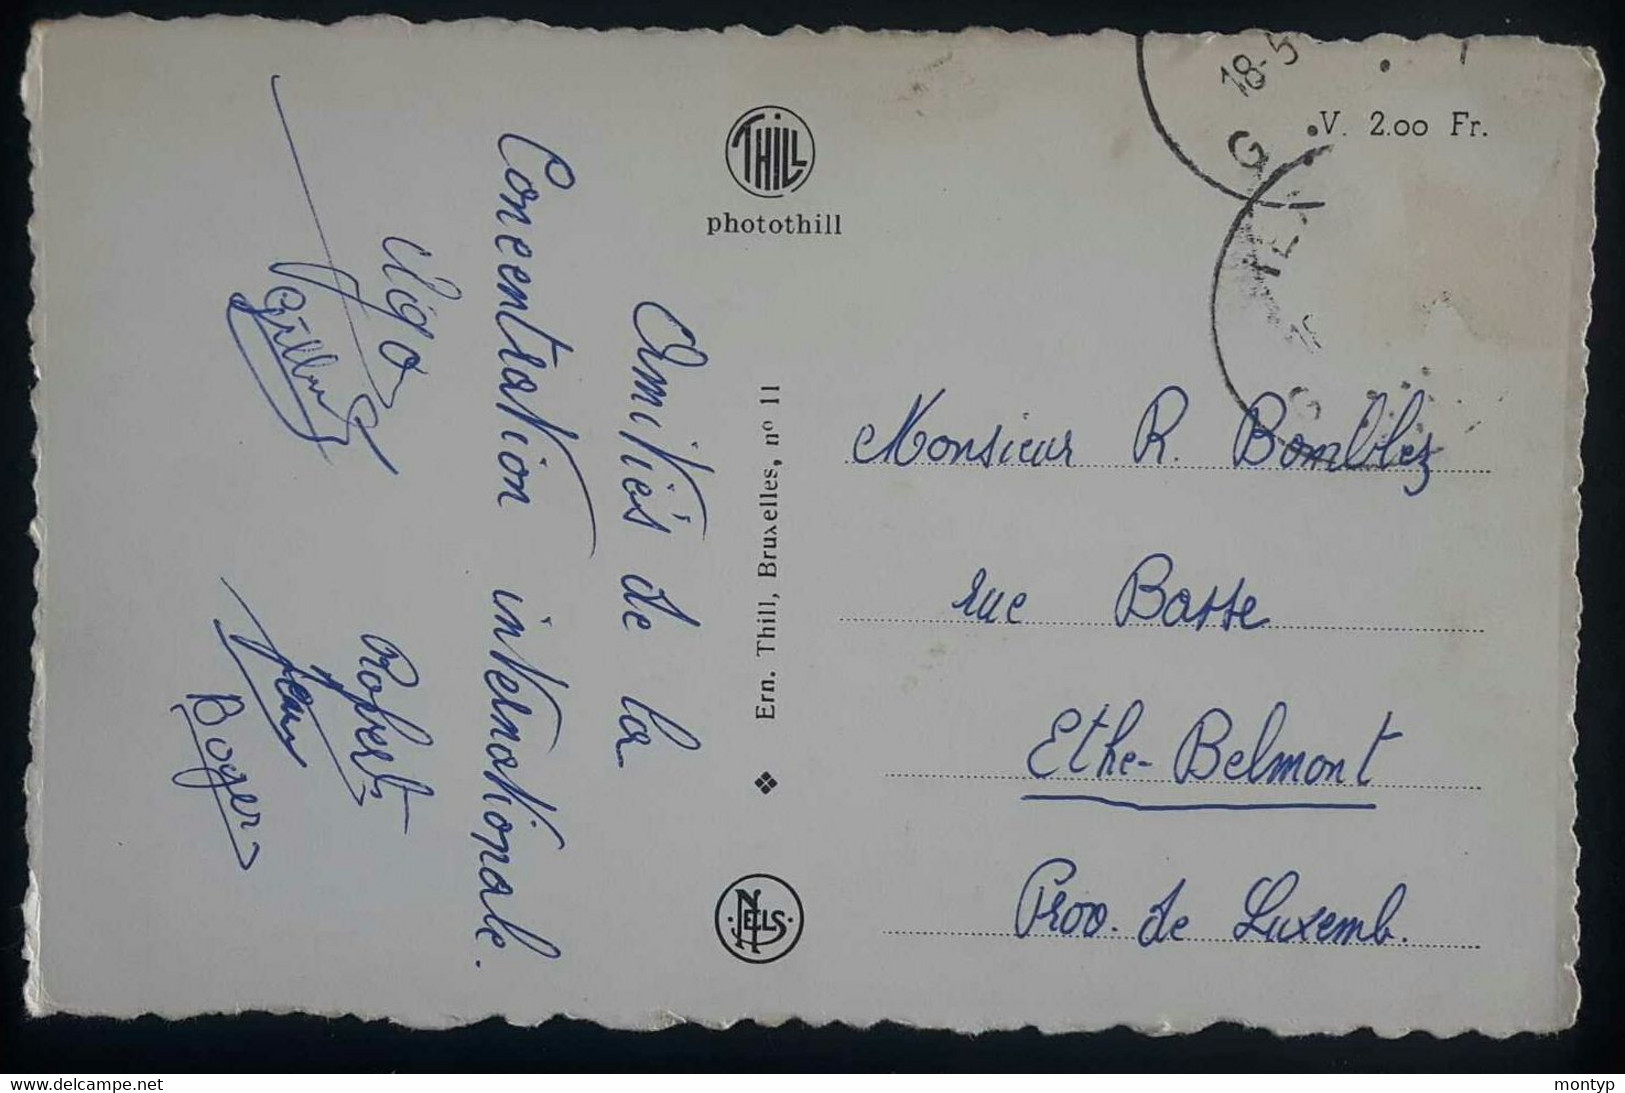 Amitiés de la
Concentration internationale.
Robert
Jean
Boger
THILL
photothill
Ern. Thill, Bruxelles, n° 11
NELS
18-5
V. 2.00 Fr.
Monsieur R. Bomblez
rue Basse
Ethe-Belmont
Prov. de Luxemb.
delcampe.net
montyp